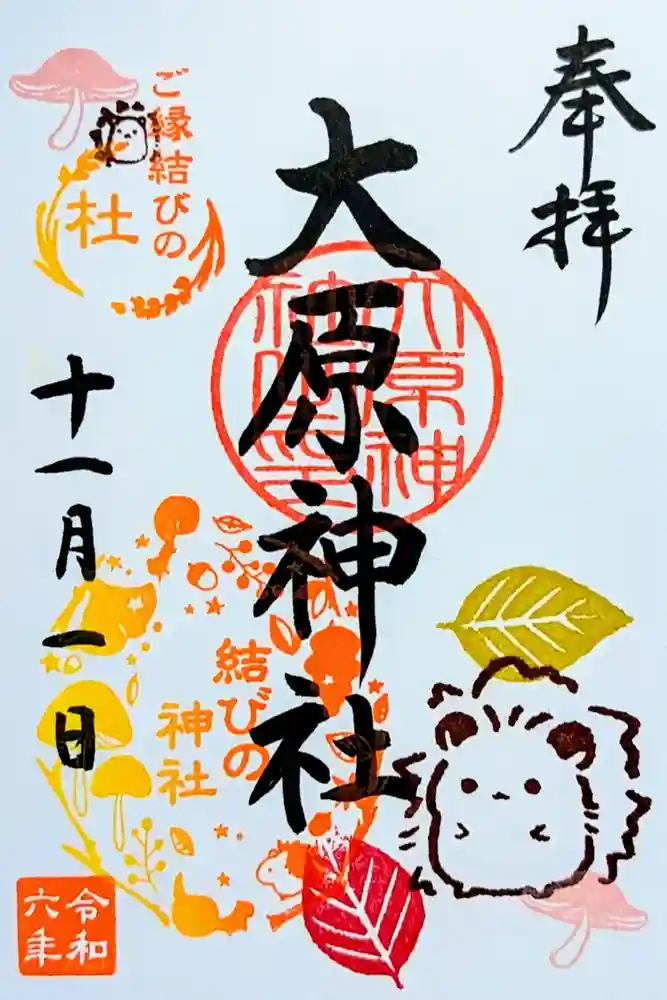 奉拝
大原神社
大原神社神璽
ご縁結びの
社
十一月一日
結びの
神社
令和
六年